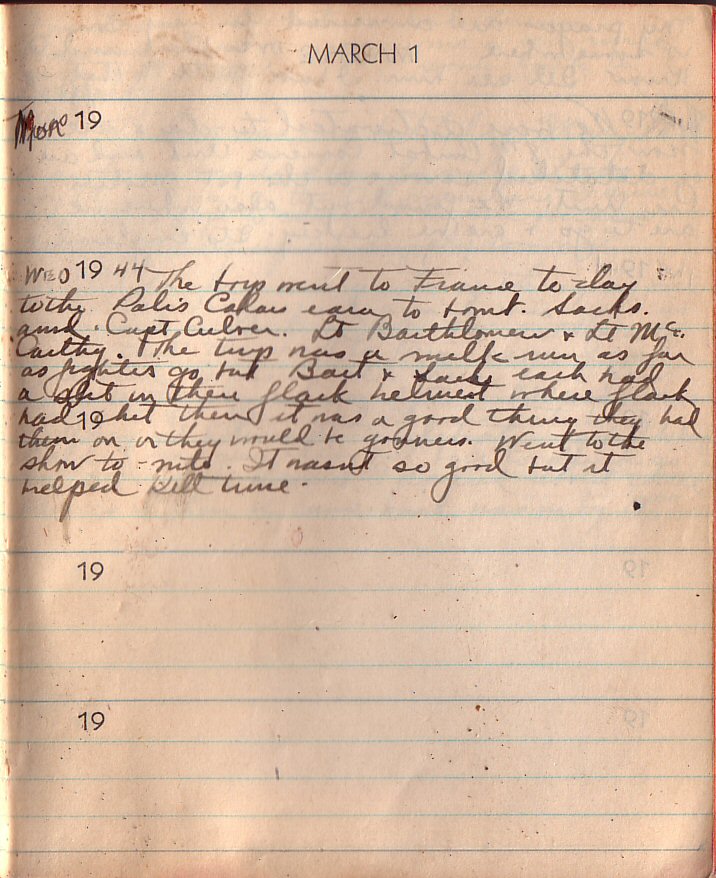 MARCH 1
19
WED 19 44 The trip went to France to day
to the Palis Calais eara to bomb. Sacks.
and. Capt Culver. Lt Barthlomew & Lt Mc.
Carthy. The trip was a milk run as far
as fighters go but Bart & Sacks each had
a slit in their flack helment where flack
had hit them it was a good thing they had
19
them on or they would be gonners. Went to the
show to-nite. It wasnt so good but it
helped kill time.
19
19